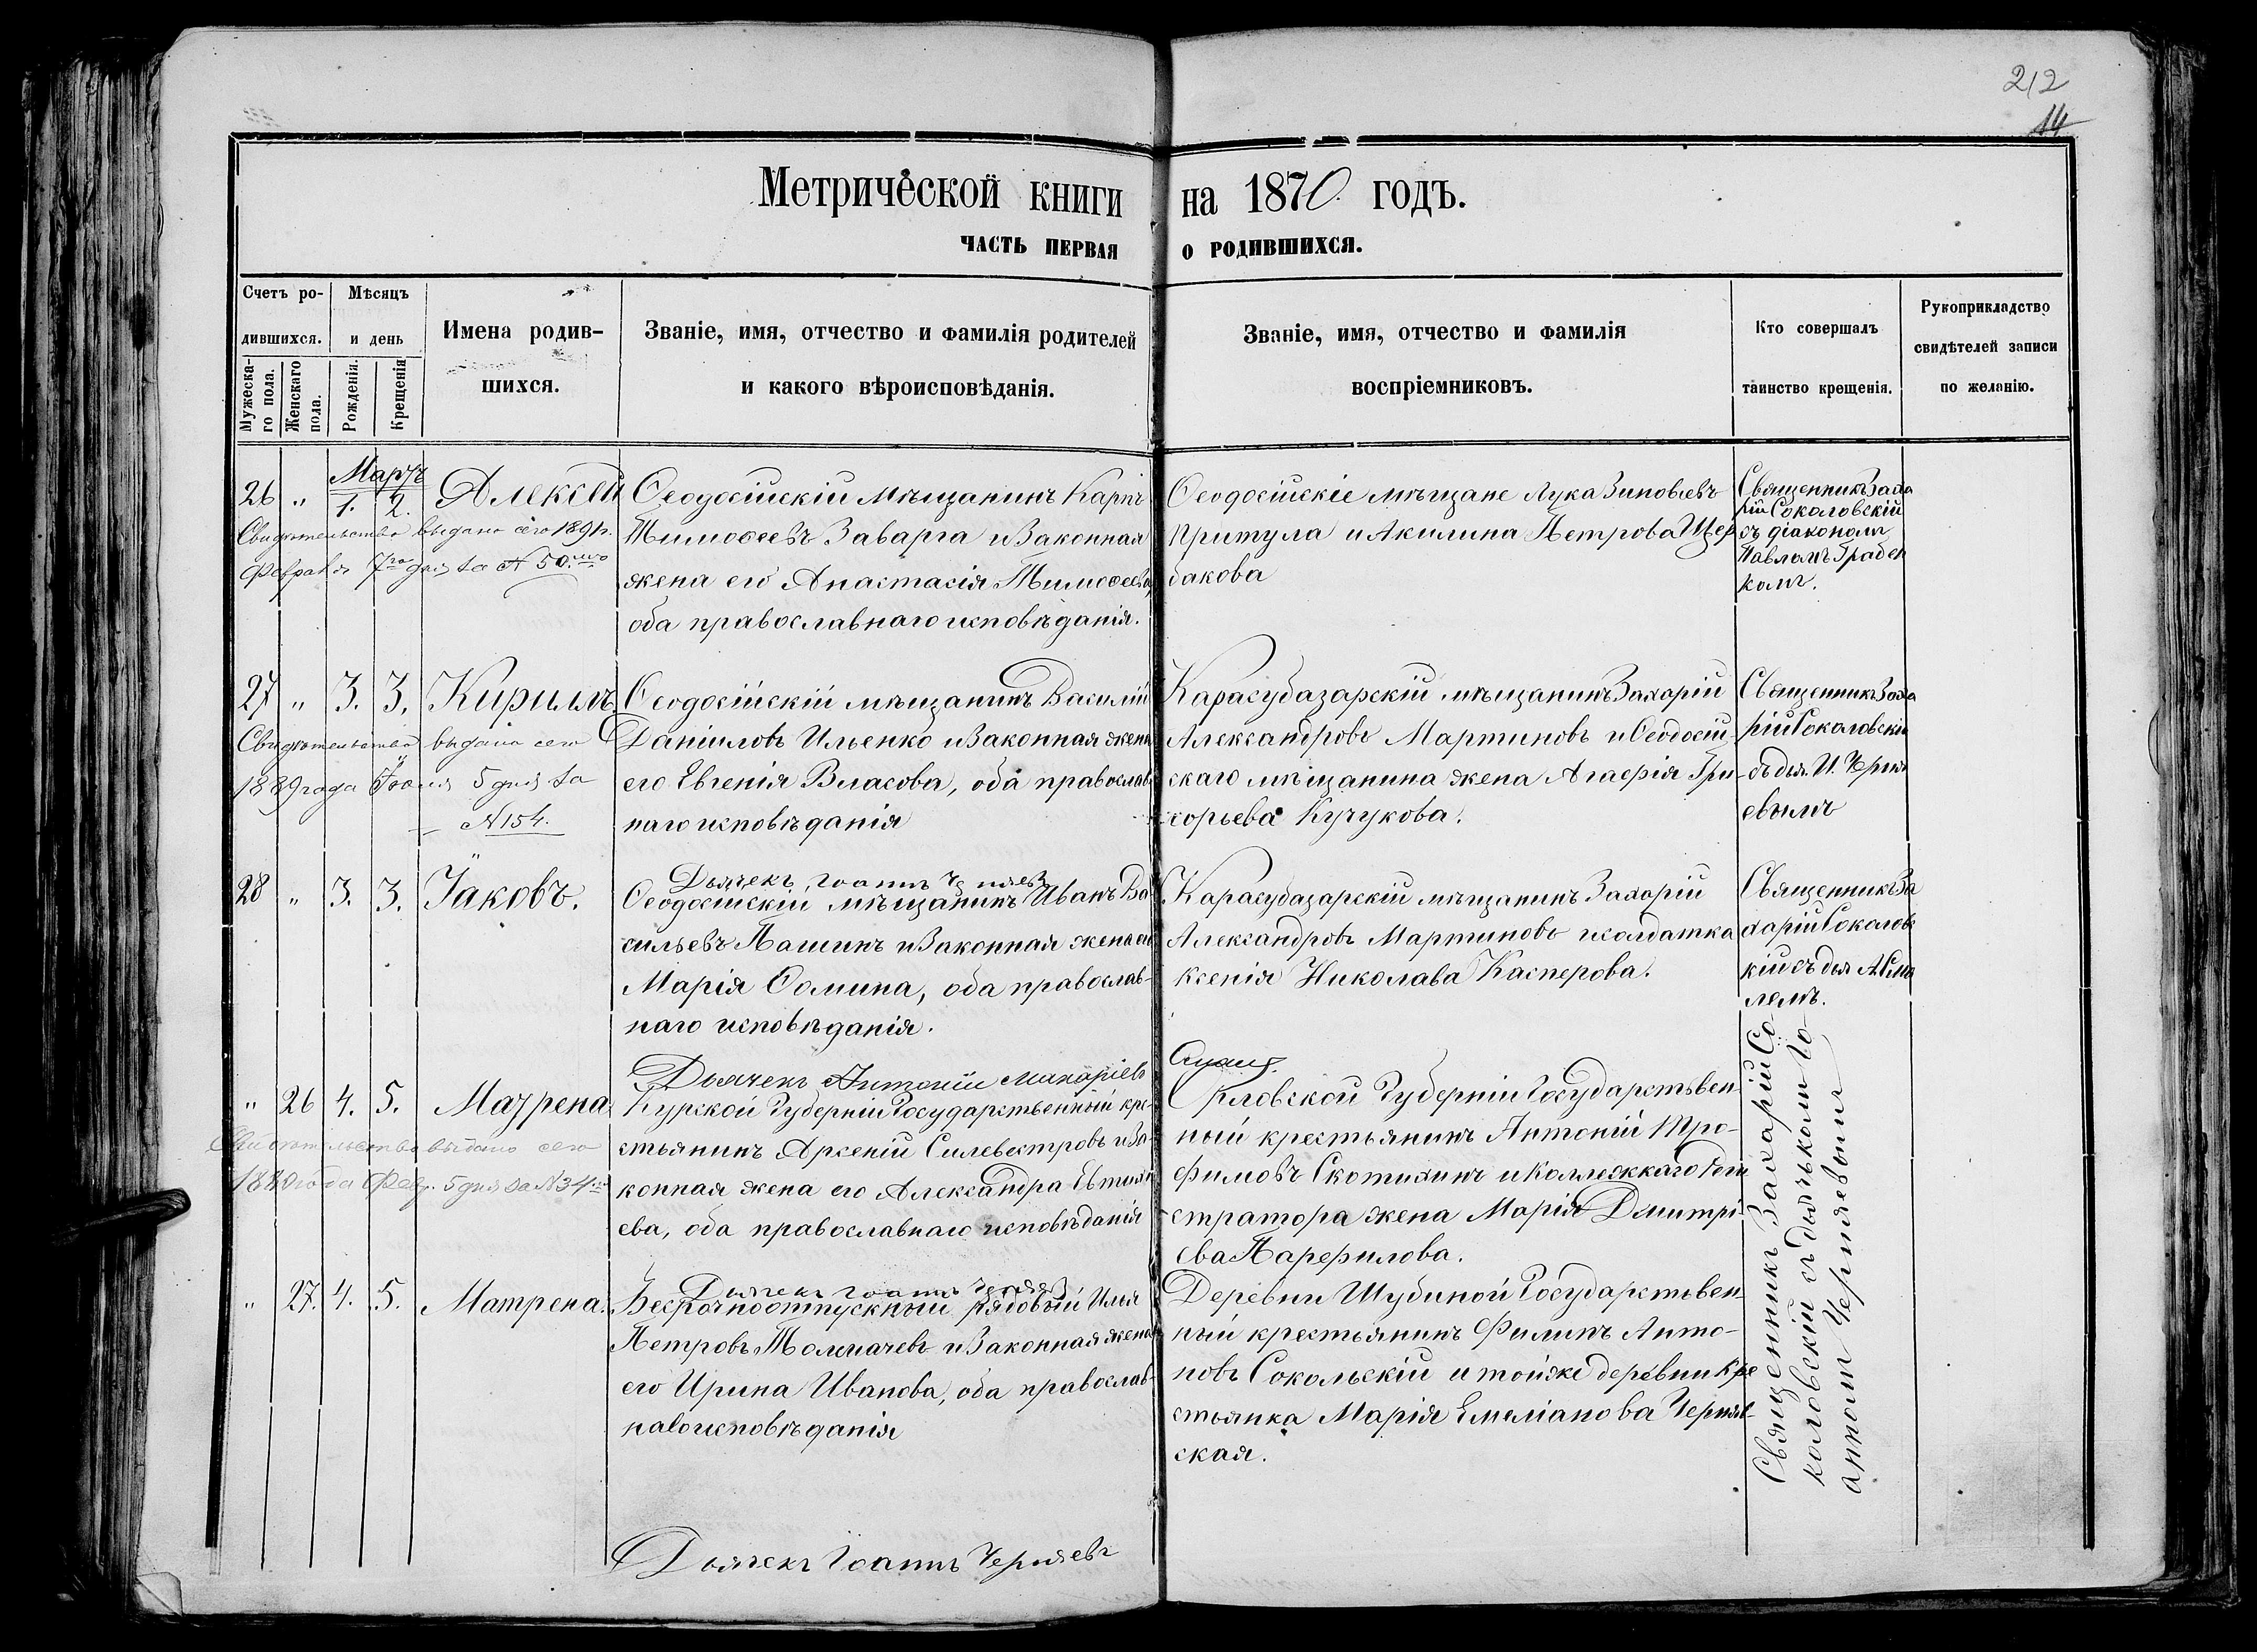 212
14
Метрической книги на 1870 годъ.
ЧАСТЬ ПЕРВАЯ О РОДИВШИХСЯ.
Счетъ ро-
дившихся.
Мужеска-
го пола.
Женскаго
пола.
Мѣсяцъ
и день
Рожденія.
Крещенія
Имена родив-
шихся.
Званіе, имя, отчество и фамилія родителей
и какого вѣроисповѣданія.
Званіе, имя, отчество и фамилія
воспріемниковъ.
Кто совершалъ
таинство крещенія.
Рукоприкладство
свидѣтелей записи
по желанію.
Мартъ
26 " 1. 2. Алексѣй
Свидѣтельство выдано сего 1891 г.
Февраля 7го дня за № 50.
Ѳеодосійскій мѣщанинъ Карпъ
Тимоѳеевъ Заварга и законная
жена его Анастасія Тимоѳеева,
оба православнаго исповѣданія.
Ѳеодосійскіе мѣщане Лука Зиновіевъ
Притула и Акилина Петрова Щер
бакова
Священникъ Заха
рій Соколовскій
съ діакономъ
Павломъ Грабен
комъ.
27 " 3. 3. Кириллъ.
Свидѣтельство выдано сего
1889 года Іюня 5 дня за
№ 154.
Ѳеодосійскій мѣщанинъ Василій
Даніиловъ Ильенко и законная жена
его Евгенія Власова, оба православ
наго исповѣданія
Карасубазарскій мѣщанинъ Захарій
Александровъ Мартиновъ и Ѳеодосій-
скаго мѣщанина жена Агафія Гри-
горьева Кучукова.
Священникъ Заха
рій Соколовскій
съ дья. И. Черня
евымъ
28 " 3. 3. Іаковъ.
Дьячекъ Іоаннъ Черняевъ
Ѳеодосійскій мѣщанинъ Иванъ Ва
сильевъ Пашинъ и законная жена его
Марія Ѳомина, оба православ-
наго исповѣданія.
Карасубазарскій мѣщанинъ Захарій
Александровъ Мартиновъ и солдатка
Ксенія Николава Касперова.
Священникъ За
харій Соколовс
кій съ дья
Дьячекъ Антоній Макаріевъ
" 26 4. 5. Матрена
Свидѣтельство выдано сего
Фев. 5 дня за № 34
Курской Губерніи Государственный кре-
стьянинъ Арсеній Силевестровъ и За-
конная жена его Александра Евтихі
ева, оба православнаго исповѣданія
Орловской Губерніи Государствен-
ный крестьянинъ Антоній Тро-
фимовъ Скотихинъ и Коллежкаго Реги
стратора жена Марія Дмитрі-
ева Парфилова.
Дьячекъ Іоаннъ Черняевъ
" 27. 4. 5. Матрена.
Безсрочноотпускный рядовый Илья
Петровъ Толмачевъ и законная жена
его Ирина Иванова, оба православ-
наго исповѣданія
Деревни Шубиной Государствен-
ный крестьянинъ Филипъ Анто-
новъ Сокольскій и тойже деревни кре
стьянка Марія Емеліанова Черняв-
ская.
Священникъ Захарій Со-
коловскій съ дьячькомъ Іо-
анномъ Черняевымъ
Дьячекъ Іоаннъ Черняевъ